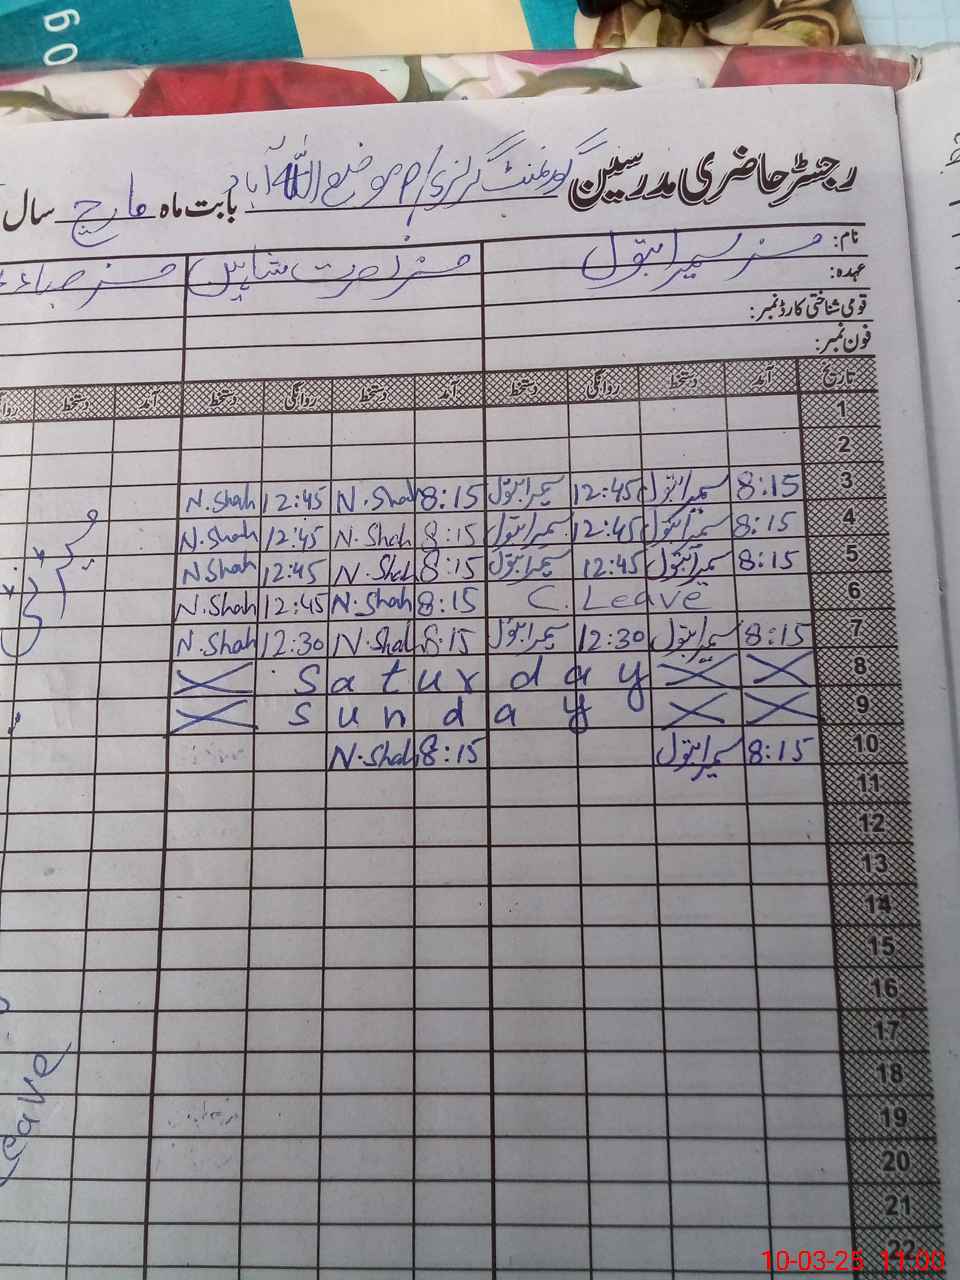 رجسٹر حاضری مدرسین گورنمنٹ گرلز موضع اللہ آباد بابت ماہ مارچ سال
نام: مسز سمیرا بتول مسز نصرت شاہین مسز صباء
عہدہ:
قومی شناختی کارڈ نمبر:
فون نمبر:
تاریخ آمد دستخط روانگی دستخط آمد دستخط روانگی دستخط آمد دستخط
1
2
3 8:15 سمیرا بتول 12:45 سمیرا بتول 8:15 N.Shah 12:45 N.Shah
4 8:15 سمیرا بتول 12:45 سمیرا بتول 8:15 N.Shah 12:45 N.Shah
5 8:15 سمیرا بتول 12:45 سمیرا بتول 8:15 N.Shah 12:45 N.Shah
6 C. Leave 8:15 N.Shah 12:45 N.Shah
7 8:15 سمیرا بتول 12:30 سمیرا بتول 8:15 N.Shah 12:30 N.Shah
8 Saturday
9 Sunday
10 8:15 سمیرا بتول 8:15 N.Shah
11
12
13
14
15
16
17
18
19
20
21
22
Leave
10-03-25 11:00